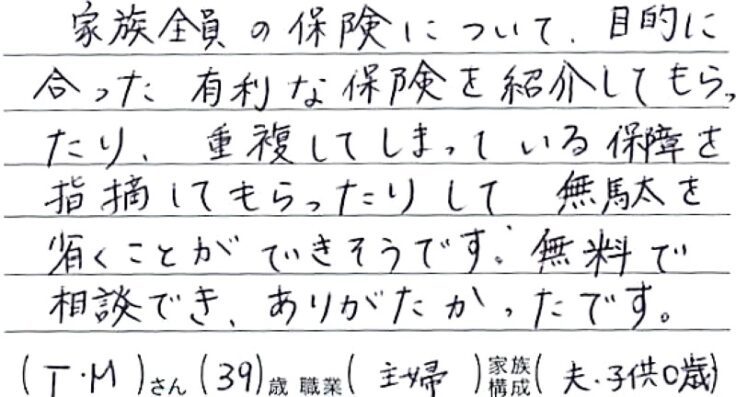 家族全員の保険について、目的に
合った有利な保険を紹介してもらっ
たり、重複してしまっている保障を
指摘してもらったりして無駄を
省くことができそうです。無料で
相談でき、ありがたかったです。
(T・M)さん(39)歳 職業(主婦)家族構成(夫・子供0歳)